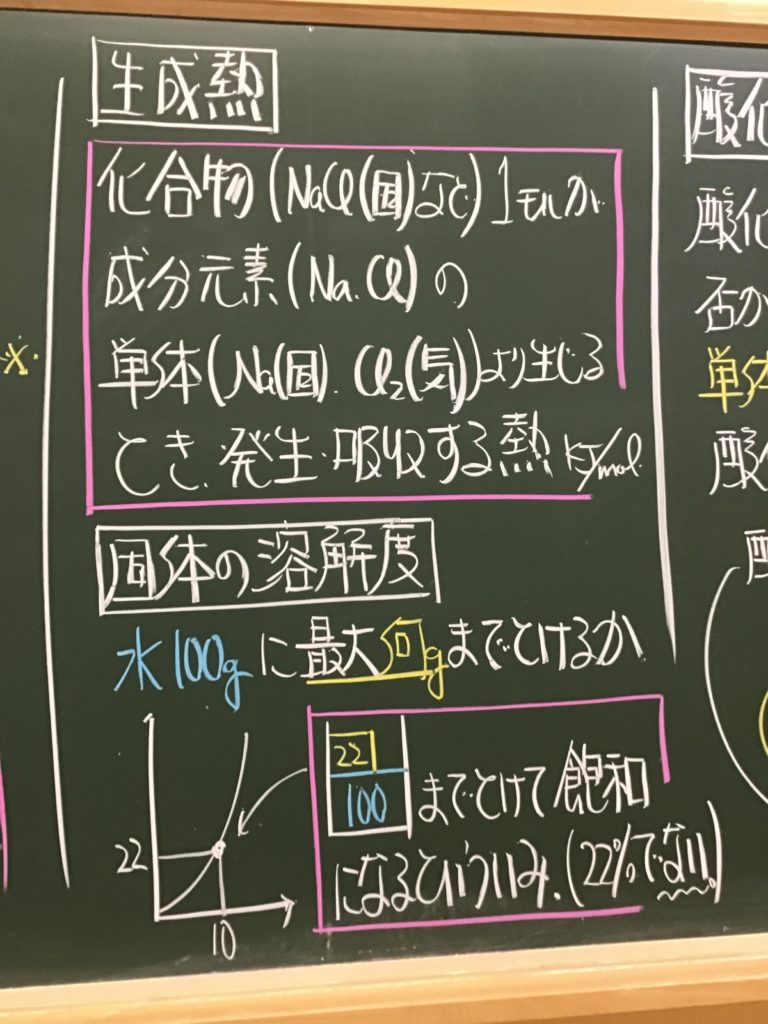 生成熱
化合物(NaCl(固)など)1モルが
成分元素(Na.Cl)の
単体(Na(固).Cl₂(気))より生じる
とき.発生・吸収する熱 kJ/mol
固体の溶解度
水100gに最大何gまでとけるか
22
10
22
100
までとけて飽和
になるといういみ.(22%でない。)
x.
酸化
酸化
否か
単体
酸化
酸